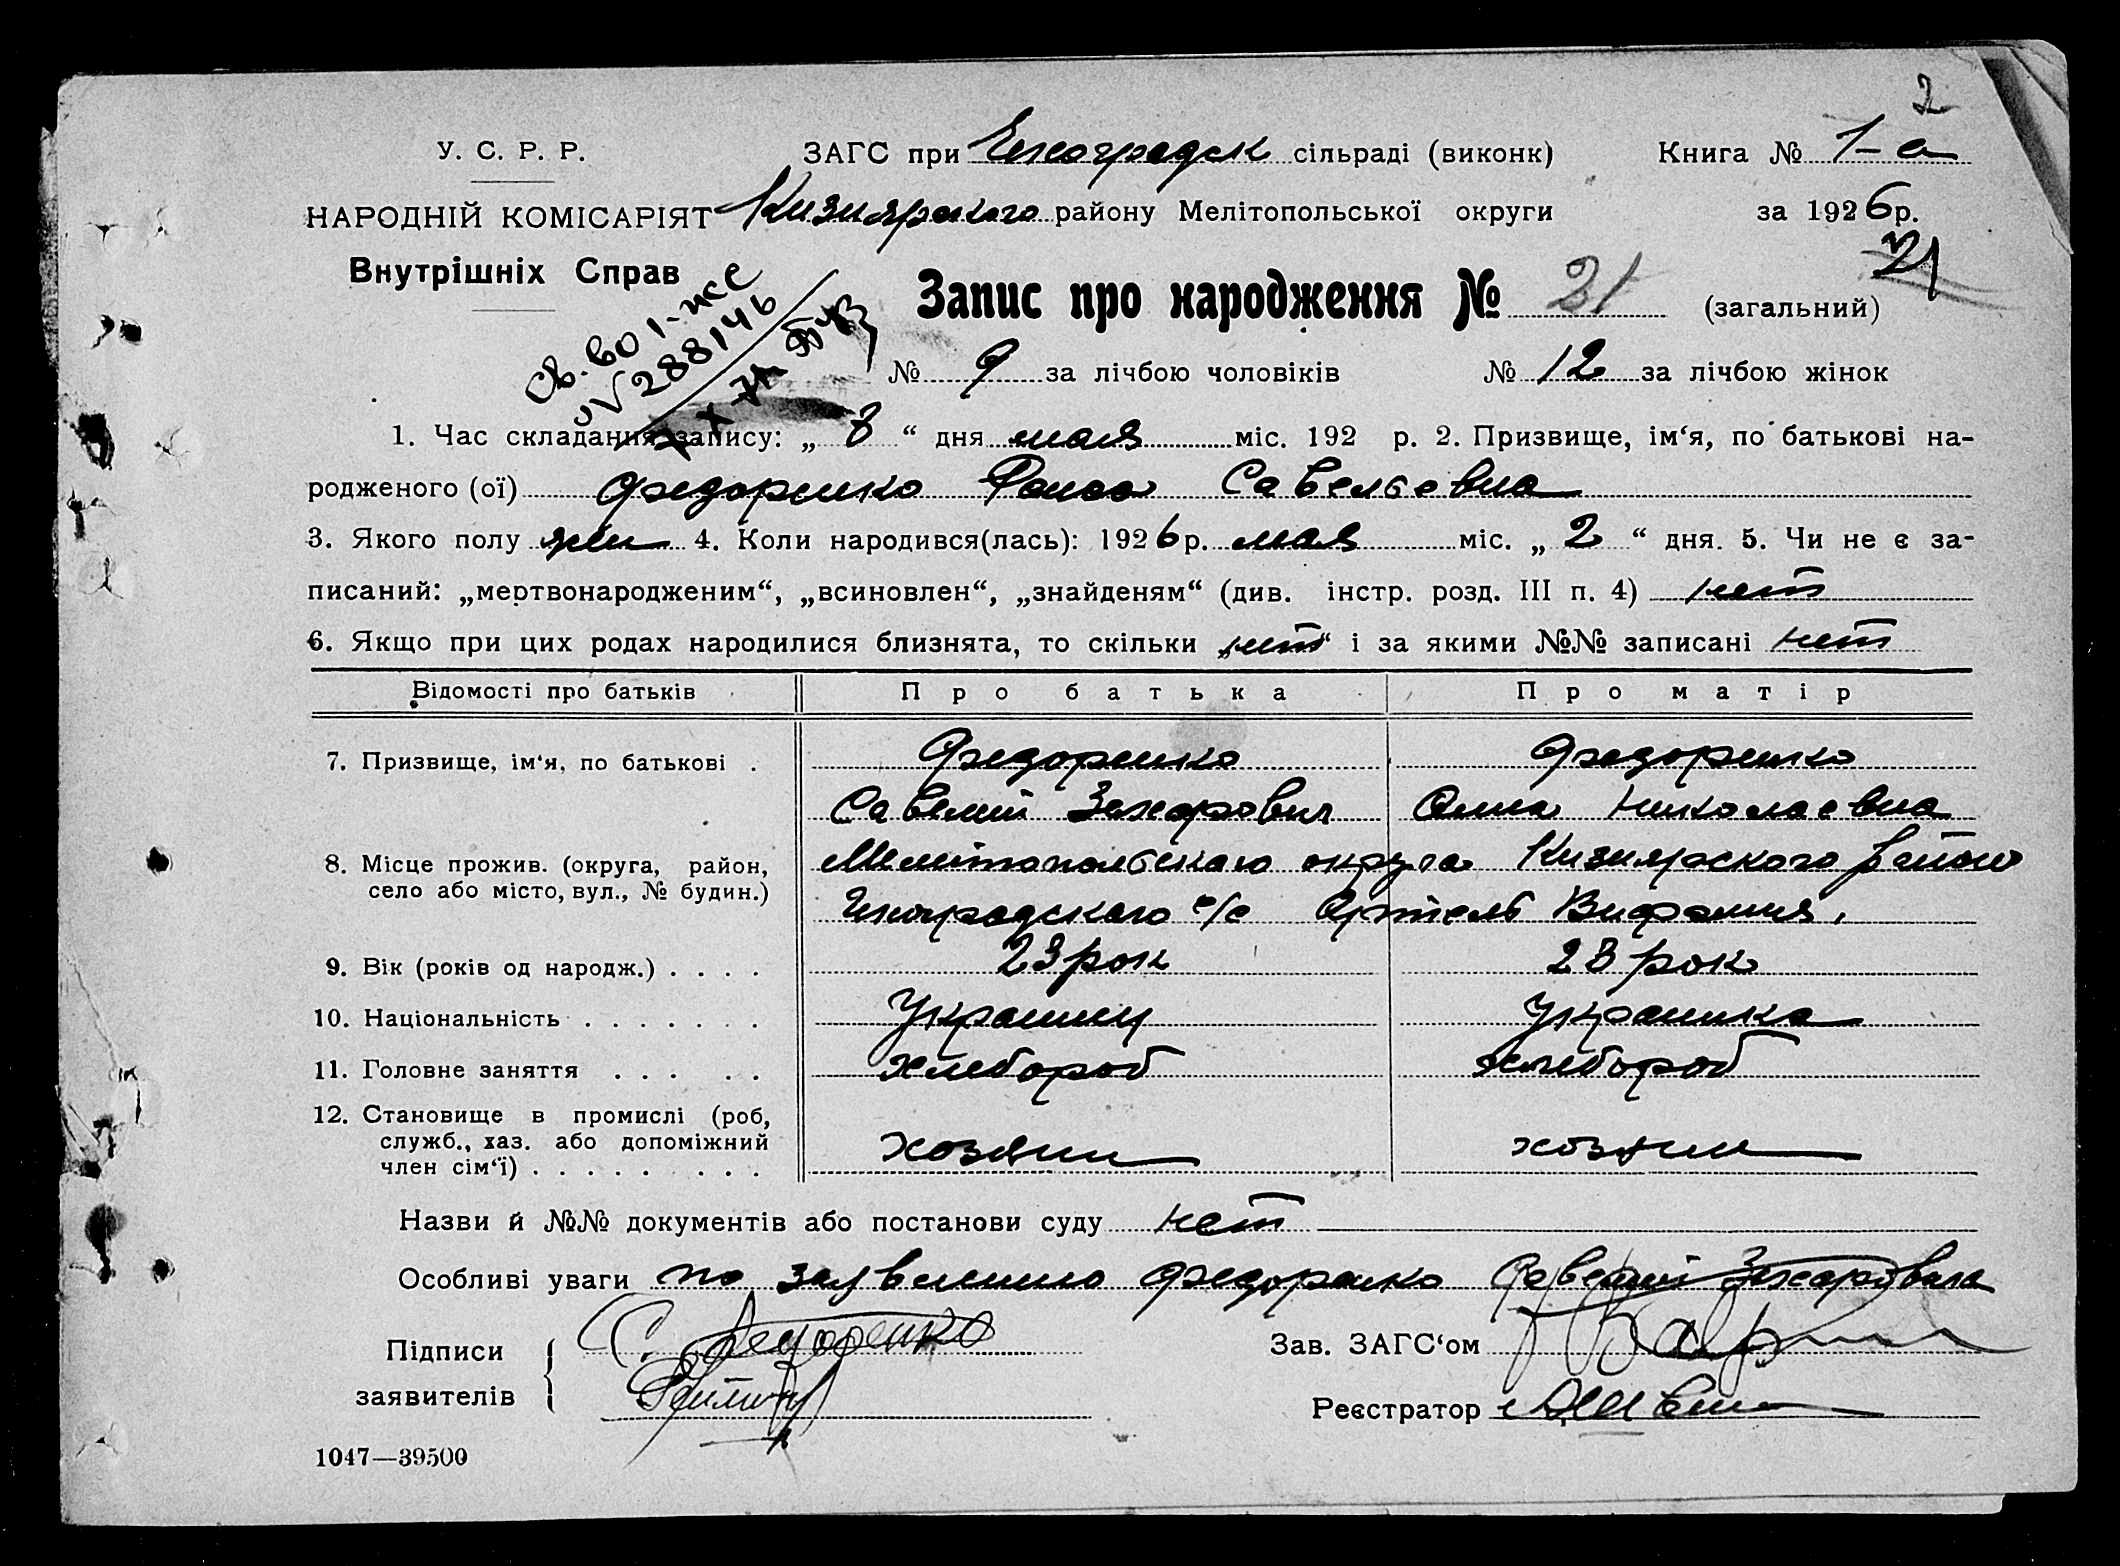 2
У. С. Р. Р. ЗАГС при сільраді (виконк) Книга № 1-а
НАРОДНІЙ КОМІСАРІЯТ Кизиярского району Мелітопольської округи за 1926 р.
Внутрішніх Справ
21
Св. во 1-же
№ 288146
Запис про народження № 21 (загальний)
№ 9 за лічбою чоловіків № 12 за лічбою жінок
1. Час складання запису: „ 8 “ дня мая міс. 192 р. 2. Призвище, ім‘я, по батькові на-
родженого (ої) Федоренко Раиса Савельевна
3. Якого полу жен 4. Коли народився(лась): 1926 р. мая міс. „ 2 “ дня. 5. Чи не є за-
писаний: „мертвонародженим“, „всиновлен“, „знайденям“ (див. інстр. розд. III п. 4) нет
6. Якщо при цих родах народилися близнята, то скільки „нет“ і за якими №№ записані нет
Відомості про батьків Про батька Про матір
7. Призвище, ім‘я, по батькові . Федоренко Федоренко
Савелий Захарович Анна Николаевна
8. Місце прожив. (округа, район, Мелитопольского округа Кизиярского район
село або місто, вул., № будин.) с/с Артель Вифания,
9. Вік (років од народж.) . . . . 23 рок 28 рок
10. Національність . . . . . . . Украинец Украинка
11. Головне заняття . . . . . хлебороб хлебороб
12. Становище в промислі (роб,
служб., хаз. або допоміжний хозяин хозяин
член сім‘ї) . . . . . . . .
Назви й №№ документів або постанови суду нет
Особливі уваги по заявлению Федоренко Савелий Захаровича
Підписи С. Федоренко Зав. ЗАГС‘ом
заявителів Реєстратор
1047—39500